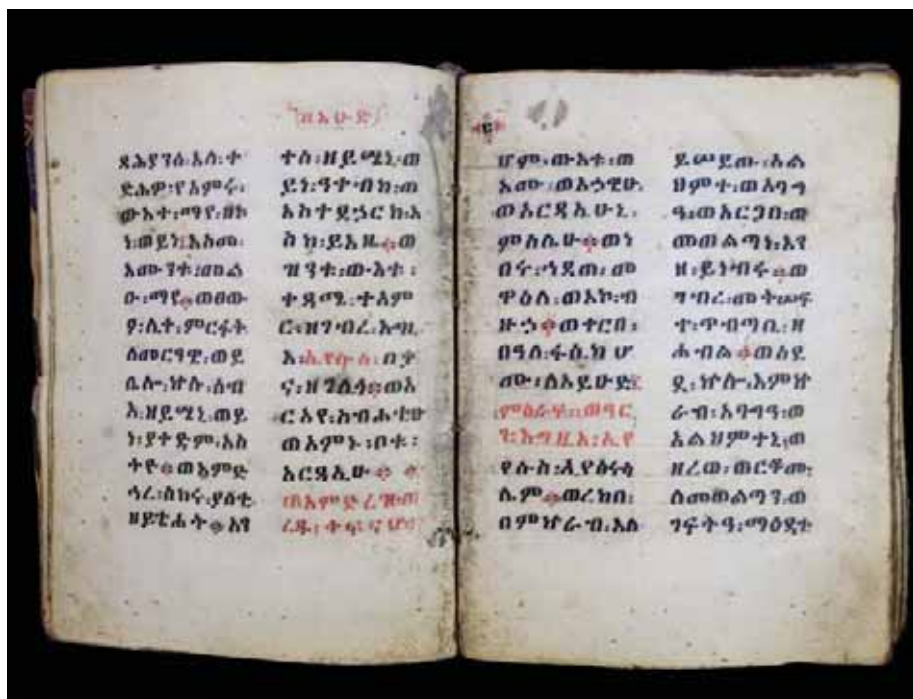 በእሁድ
ውእተ፡ማየ፡ዘኮ
ነ፡ወይነ፡እስመ፡
እሙንቱ፡መል
ዑ፡ማየ።ወፀው
ዖ፡ሊቀ፡ምርፋቅ
ለመርዓዊ፡ወይ
ቤሎ፡ኵሉ፡ሰብ
እ፡ዘይሜኒ፡ወይ
ነ፡ያቀድም፡አስ
ትዮ።ወእምድ
ኅረ፡ሰክሩ፡ያሰቲ
ዘይቴሐት።አን
ተሰ፡ዘይሜኒ፡ወ
ይነ፡ዓቀብከ፡ወ
አስተደኃርከ፡እ
ስከ፡ይእዜ።ወ
ዝንቱ፡ውእቱ፡
ቀዳሜ፡ተአም
ር፡ዘገብረ፡እግዚ
እ፡ኢየሱስ፡በቃ
ና፡ዘገሊላ።ወአ
ርአየ፡ስብሐቲሁ
ወአምኑ፡ቦቱ፡
አርዳኢሁ።
ወእምድረዝ፡ወ
ረዱ፡ቅፍርናሆ
ም፡ውእቱ፡ወ
እሙ፡ወአኃዊሁ
ወአርዳኢሁኒ፡
ምስሌሁ።ወነ
በሩ፡ኅዳጠ፡መ
ዋዕለ፡ወአኮ፡ብ
ዙኃ።ወቀርበ፡
በዓለ፡ፋሲካሆ
ሙ፡ለአይሁድ።
ምዕራፍ።ወዓር
ገ፡እግዚእ፡ኢየ
የሱስ፡ኢየሩሳ
ሌም።ወረከበ፡
በምኵራብ፡እለ
ይሠይጡ፡አል
ህምተ፡ወአባግ
ዓ፡ወአርጋበ፡ወ
መወልጣነ፡እን
ዘ፡ይነብሩ።ወ
ገብረ፡መቅሠፍ
ተ፡ጥብጣቤ፡ዘ
ሐብል።ወሰደ
ደ፡ኵሎ፡እምኵ
ራብ፡አባግዓ፡ወ
አልህምተኒ፡ወ
ዘረወ፡ወርቆሙ፡
ለመወልጣን፡ወ
ገፍትዓ፡ማዕዳቲ